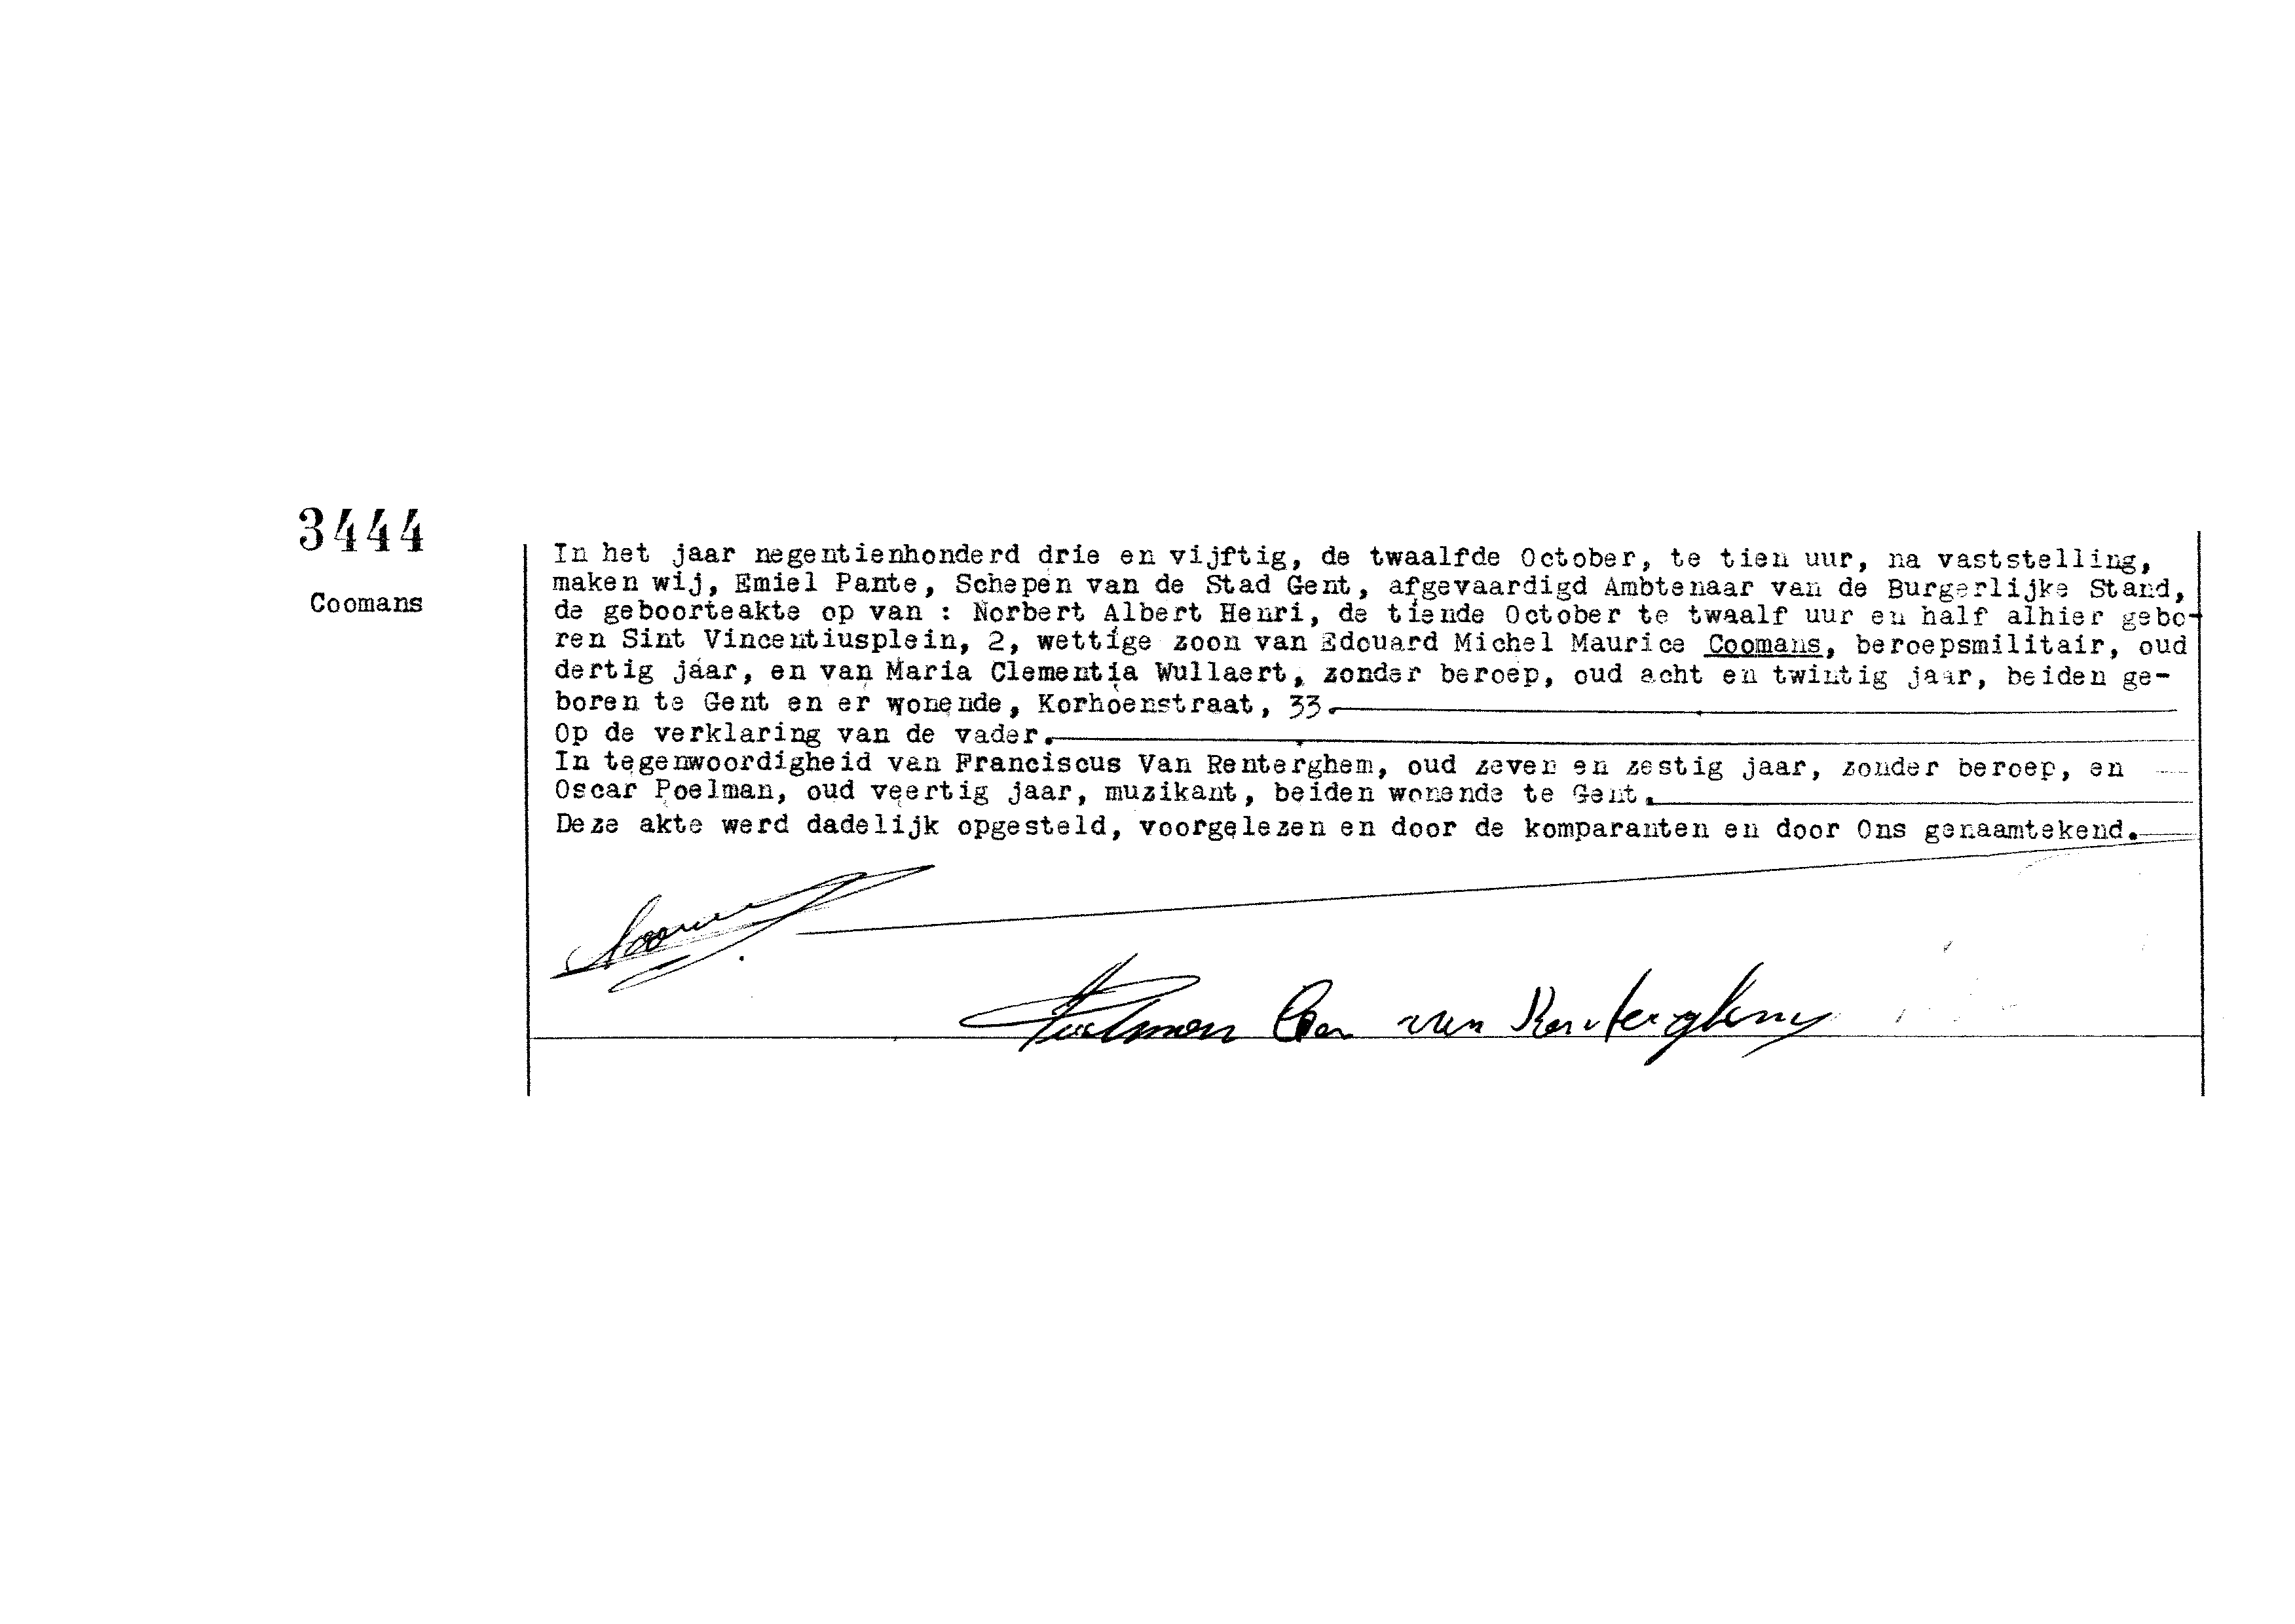 3444
Coomans
In het jaar negentienhonderd drie en vijftig, de twaalfde October, te tien uur, na vaststelling,
maken wij, Emiel Pante, Schepen van de Stad Gent, afgevaardigd Ambtenaar van de Burgerlijke Stand,
de geboorteakte op van : Norbert Albert Henri, de tiende October te twaalf uur en half alhier gebo-
ren Sint Vincentiusplein, 2, wettige zoon van Edouard Michel Maurice Coomans, beroepsmilitair, oud
dertig jaar, en van Maria Clementia Wullaert, zonder beroep, oud acht en twintig jaar, beiden ge-
boren te Gent en er wonende, Korhoenstraat, 33.
Op de verklaring van de vader.
In tegenwoordigheid van Franciscus Van Renterghem, oud zeven en zestig jaar, zonder beroep, en
Oscar Poelman, oud veertig jaar, muzikant, beiden wonende te Gent.
Deze akte werd dadelijk opgesteld, voorgelezen en door de komparanten en door Ons genaamtekend.
Poelman van Renterghem